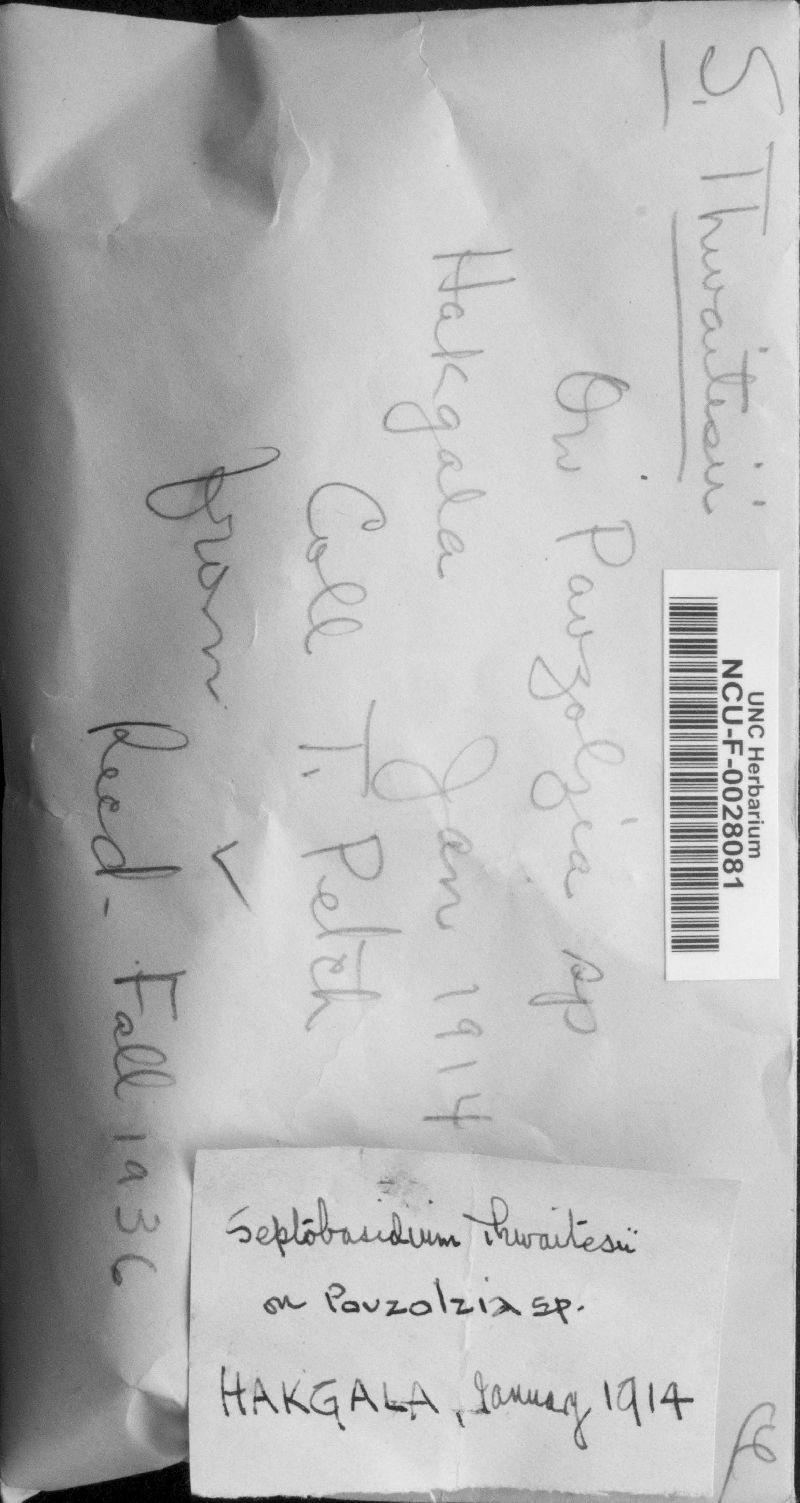 S. Thwaitesii
On Pouzolzia sp
Hakgala Jan 1914
Coll T. Petch
from ✓
Recd - Fall 1936
UNC Herbarium
NCU-F-0028081
Septobasidium Thwaitesii
on Pouzolzia sp.
HAKGALA, January 1914